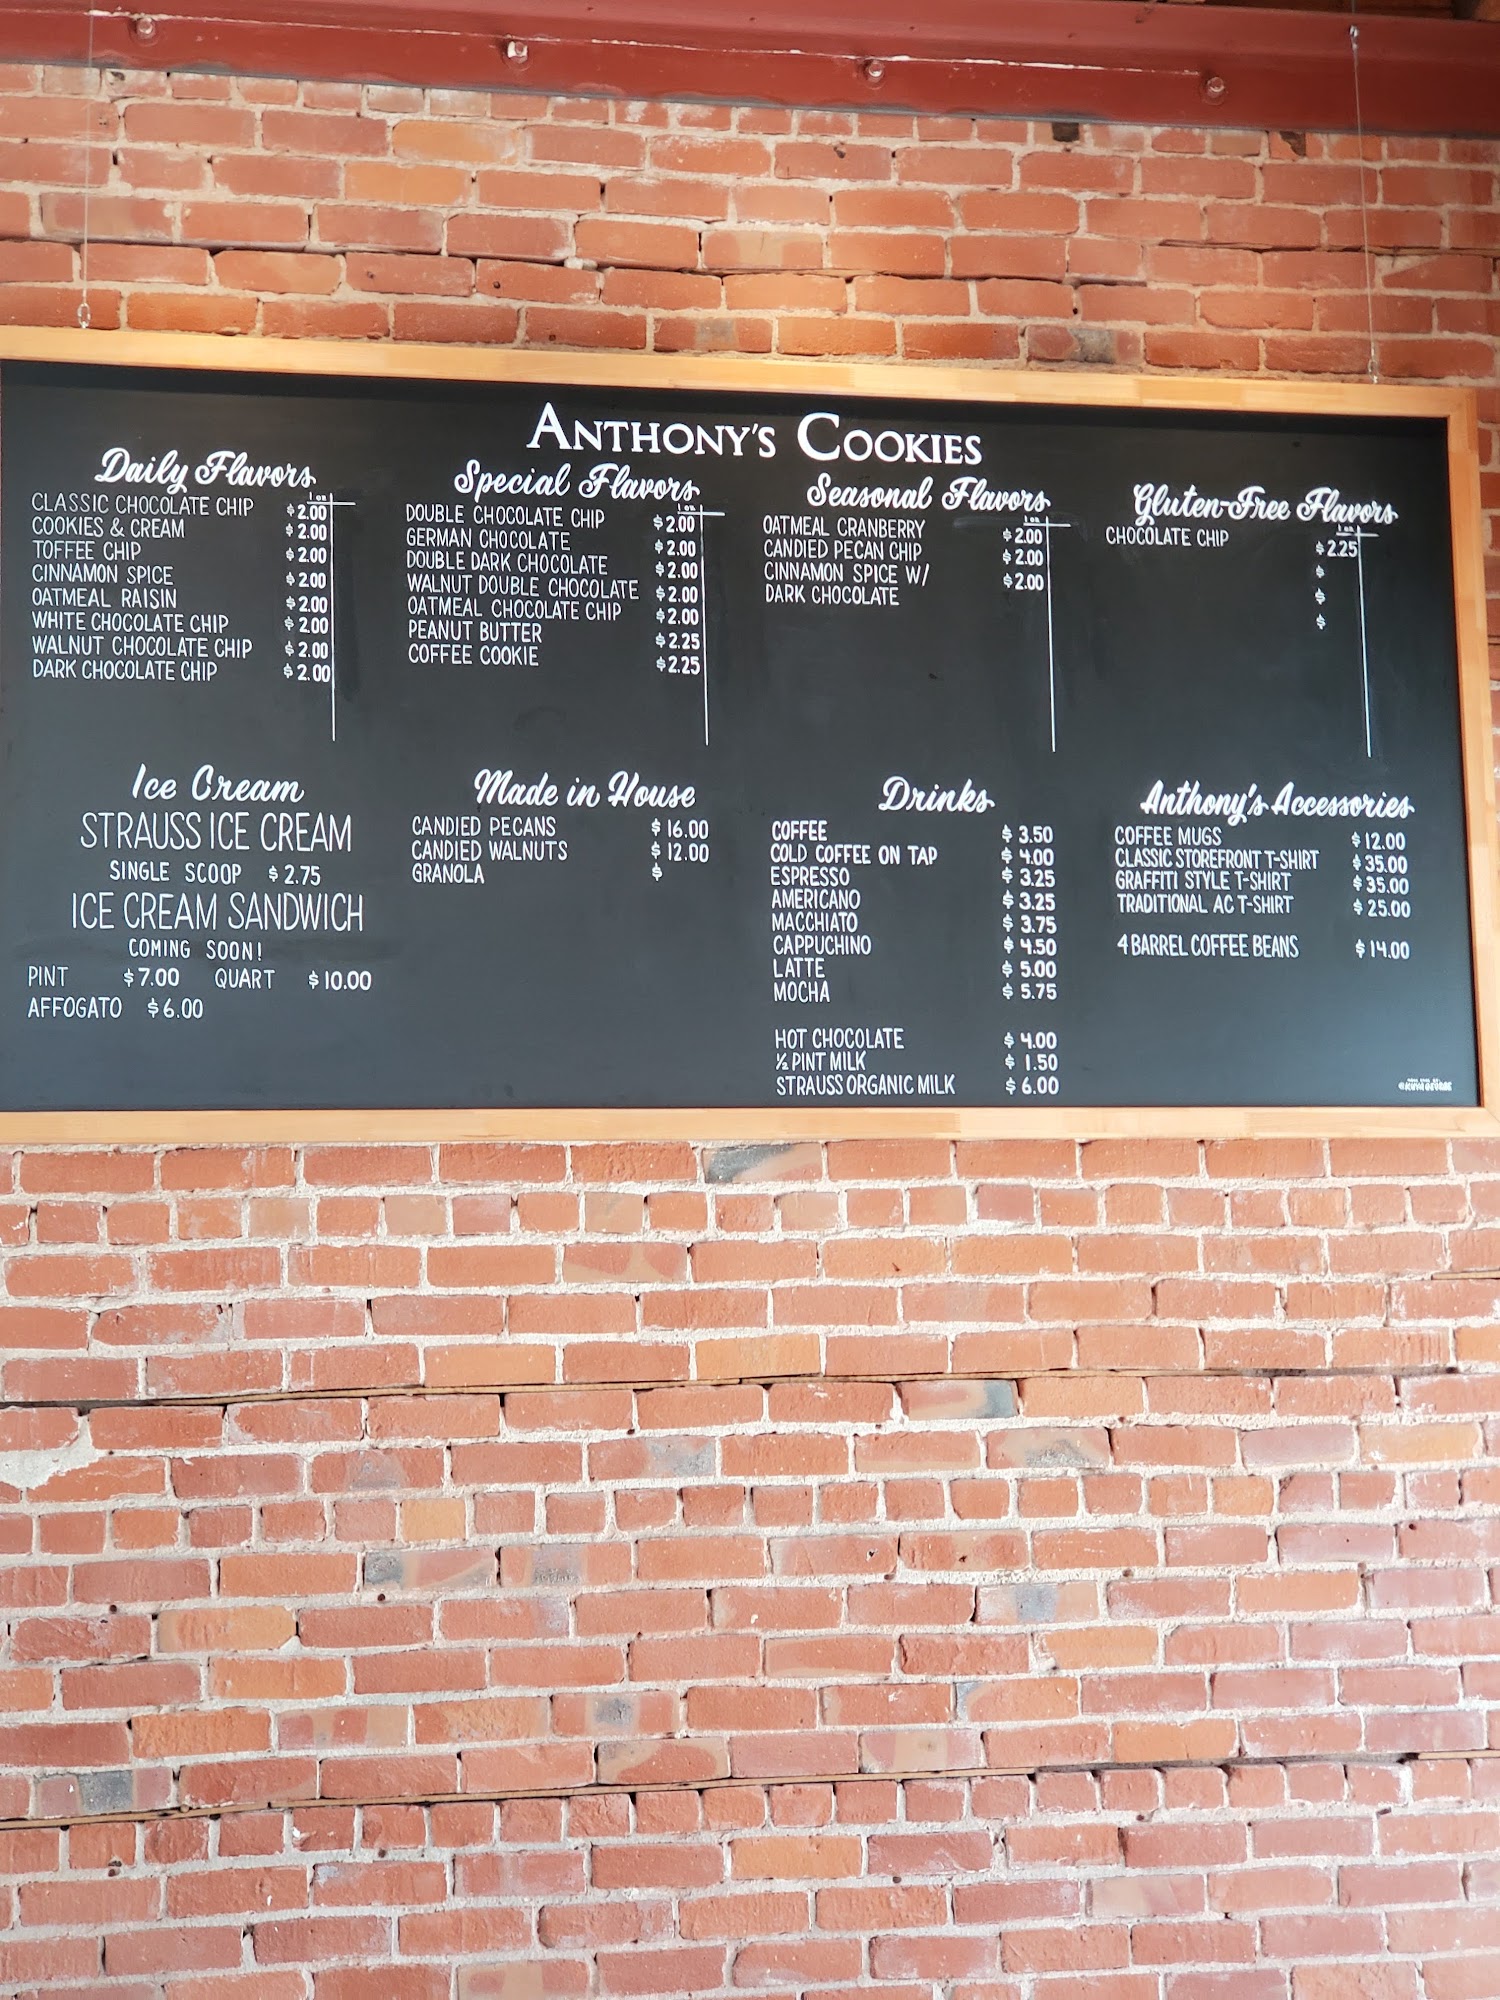 ANTHONY'S COOKIES
Daily Flavors
1 oz
CLASSIC CHOCOLATE CHIP $2.00
COOKIES & CREAM $2.00
TOFFEE CHIP $2.00
CINNAMON SPICE $2.00
OATMEAL RAISIN $2.00
WHITE CHOCOLATE CHIP $2.00
WALNUT CHOCOLATE CHIP $2.00
DARK CHOCOLATE CHIP $2.00
Special Flavors
1 oz
DOUBLE CHOCOLATE CHIP $2.00
GERMAN CHOCOLATE $2.00
DOUBLE DARK CHOCOLATE $2.00
WALNUT DOUBLE CHOCOLATE $2.00
OATMEAL CHOCOLATE CHIP $2.00
PEANUT BUTTER $2.25
COFFEE COOKIE $2.25
Seasonal Flavors
1 oz
OATMEAL CRANBERRY $2.00
CANDIED PECAN CHIP $2.00
CINNAMON SPICE W/ $2.00
DARK CHOCOLATE
Gluten-Free Flavors
1 oz
CHOCOLATE CHIP $2.25
$
$
$
Ice Cream
STRAUSS ICE CREAM
SINGLE SCOOP $2.75
ICE CREAM SANDWICH
COMING SOON!
PINT $7.00 QUART $10.00
AFFOGATO $6.00
Made in House
CANDIED PECANS $16.00
CANDIED WALNUTS $12.00
GRANOLA $
Drinks
COFFEE $3.50
COLD COFFEE ON TAP $4.00
ESPRESSO $3.25
AMERICANO $3.25
MACCHIATO $3.75
CAPPUCHINO $4.50
LATTE $5.00
MOCHA $5.75
HOT CHOCOLATE $4.00
½ PINT MILK $1.50
STRAUSS ORGANIC MILK $6.00
Anthony's Accessories
COFFEE MUGS $12.00
CLASSIC STOREFRONT T-SHIRT $35.00
GRAFFITI STYLE T-SHIRT $35.00
TRADITIONAL AC T-SHIRT $25.00
4 BARREL COFFEE BEANS $14.00